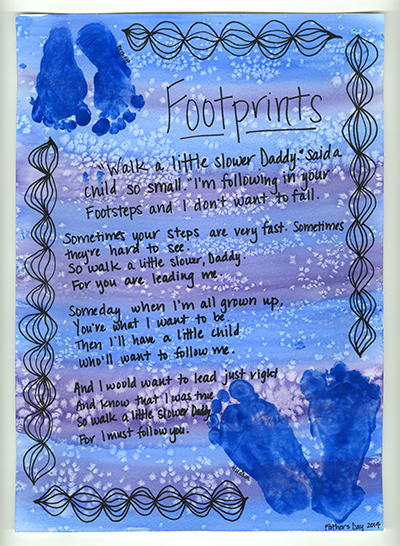 Footprints
"Walk a little slower Daddy." Said a
Child so small. "I'm following in your
Footsteps and I don't want to fall.
Sometimes your steps are very fast. Sometimes
they're hard to see.
So walk a little slower, Daddy.
For you are leading me.
Someday when I'm all grown up,
You're what I want to be.
Then I'll have a little child
Who'll want to follow me.
And I would want to lead just right
And know that I was true
So walk a little slower Daddy
For I must follow you.
Father's Day 2014